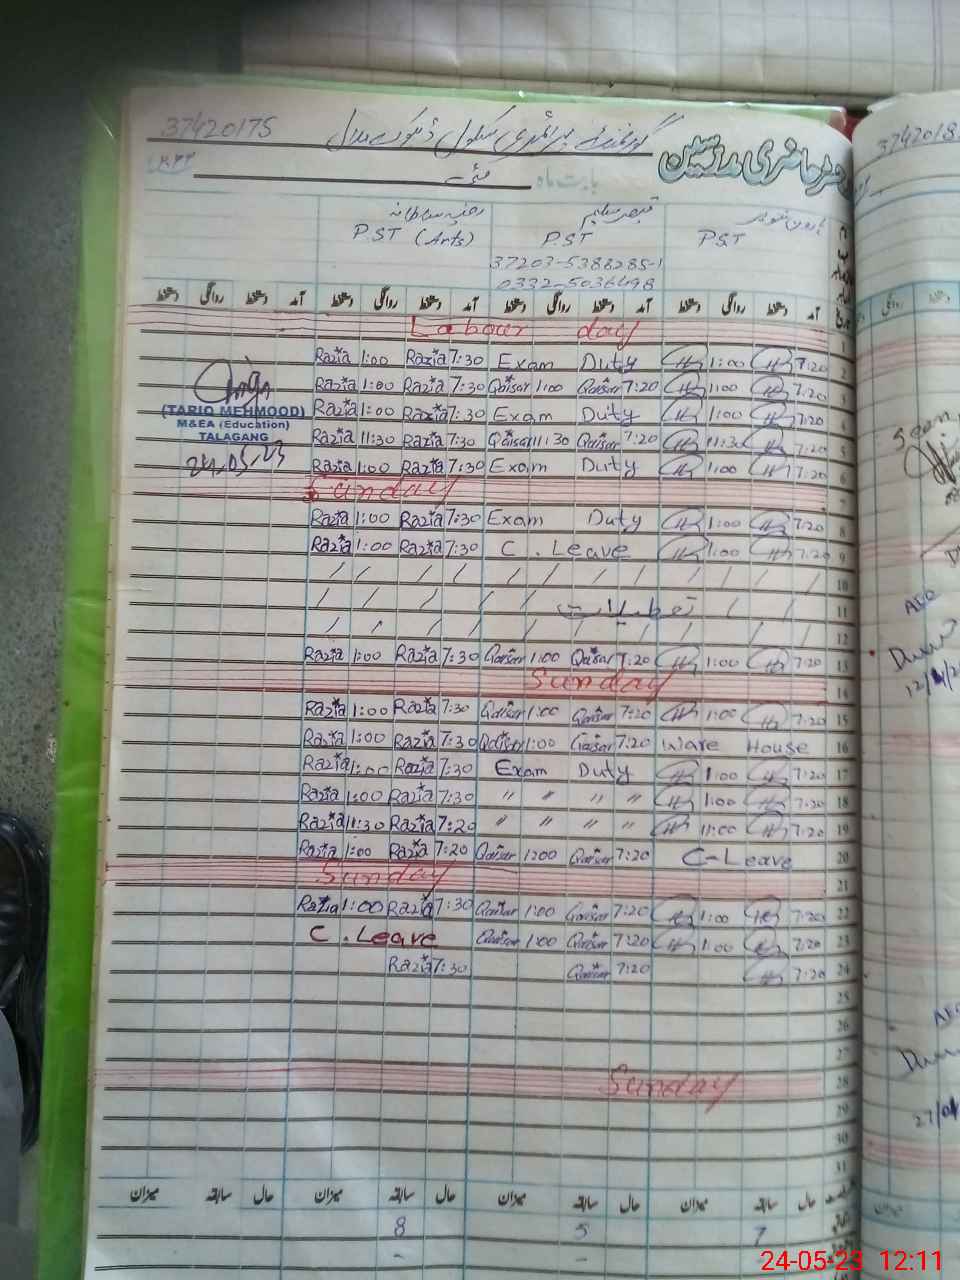 37420175 گورنمنٹ پرائمری سکول ڈھوک
حاضری مدرسین
بابت ماہ مئی
رضیہ سلطانہ قیصر سلیم ہارون
P.ST (Arts) P.ST P.S.T
37203-5388285-1
0332-5036498
دستخط روانگی دستخط آمد دستخط روانگی دستخط آمد دستخط روانگی دستخط آمد دستخط روانگی دستخط آمد تاریخ
Labour day 1
Razia 1:00 Razia 7:30 Exam Duty 1:00 7:20 2
Razia 1:00 Razia 7:30 Qaisar 1:00 Qaisar 7:20 1:00 7:20 3
Razia 1:00 Razia 7:30 Exam Duty 1:00 7:20 4
Razia 11:30 Razia 7:30 Qaisar 11:30 Qaisar 7:20 11:30 7:20 5
Razia 1:00 Razia 7:30 Exam Duty 1:00 7:20 6
(TARIQ MEHMOOD)
M&EA (Education)
TALAGANG
24.05.23
Sunday 7
Razia 1:00 Razia 7:30 Exam Duty 1:00 7:20 8
Razia 1:00 Razia 7:30 C. Leave 1:00 7:20 9
/ / / / / / / / / / / / 10
/ / / / / تعطیلات / / 11
/ / / / / / / / / / / / 12
Razia 1:00 Razia 7:30 Qaisar 1:00 Qaisar 7:20 1:00 7:20 13
Sunday 14
Razia 1:00 Razia 7:30 Qaisar 1:00 Qaisar 7:20 1:00 7:20 15
Razia 1:00 Razia 7:30 Qaisar 1:00 Qaisar 7:20 Ware House 16
Razia 1:00 Razia 7:30 Exam Duty 1:00 7:20 17
Razia 1:00 Razia 7:30 " " " " 1:00 7:20 18
Razia 11:30 Razia 7:20 " " " " 11:00 7:20 19
Razia 1:00 Razia 7:20 Qaisar 1200 Qaisar 7:20 C-Leave 20
Sunday 21
Razia 1:00 Razia 7:30 Qaisar 1:00 Qaisar 7:20 1:00 7:20 22
C. Leave Qaisar 1:00 Qaisar 7:20 1:00 7:20 23
Razia 7:30 Qaisar 7:20 7:20 24
25
26
27
Sunday 28
29
30
31
میزان سابقہ حال میزان سابقہ حال میزان سابقہ حال میزان سابقہ حال
8 5 7
- -
3742018
Seen
AEO
12/
AEO
27/04
24-05-23 12:11